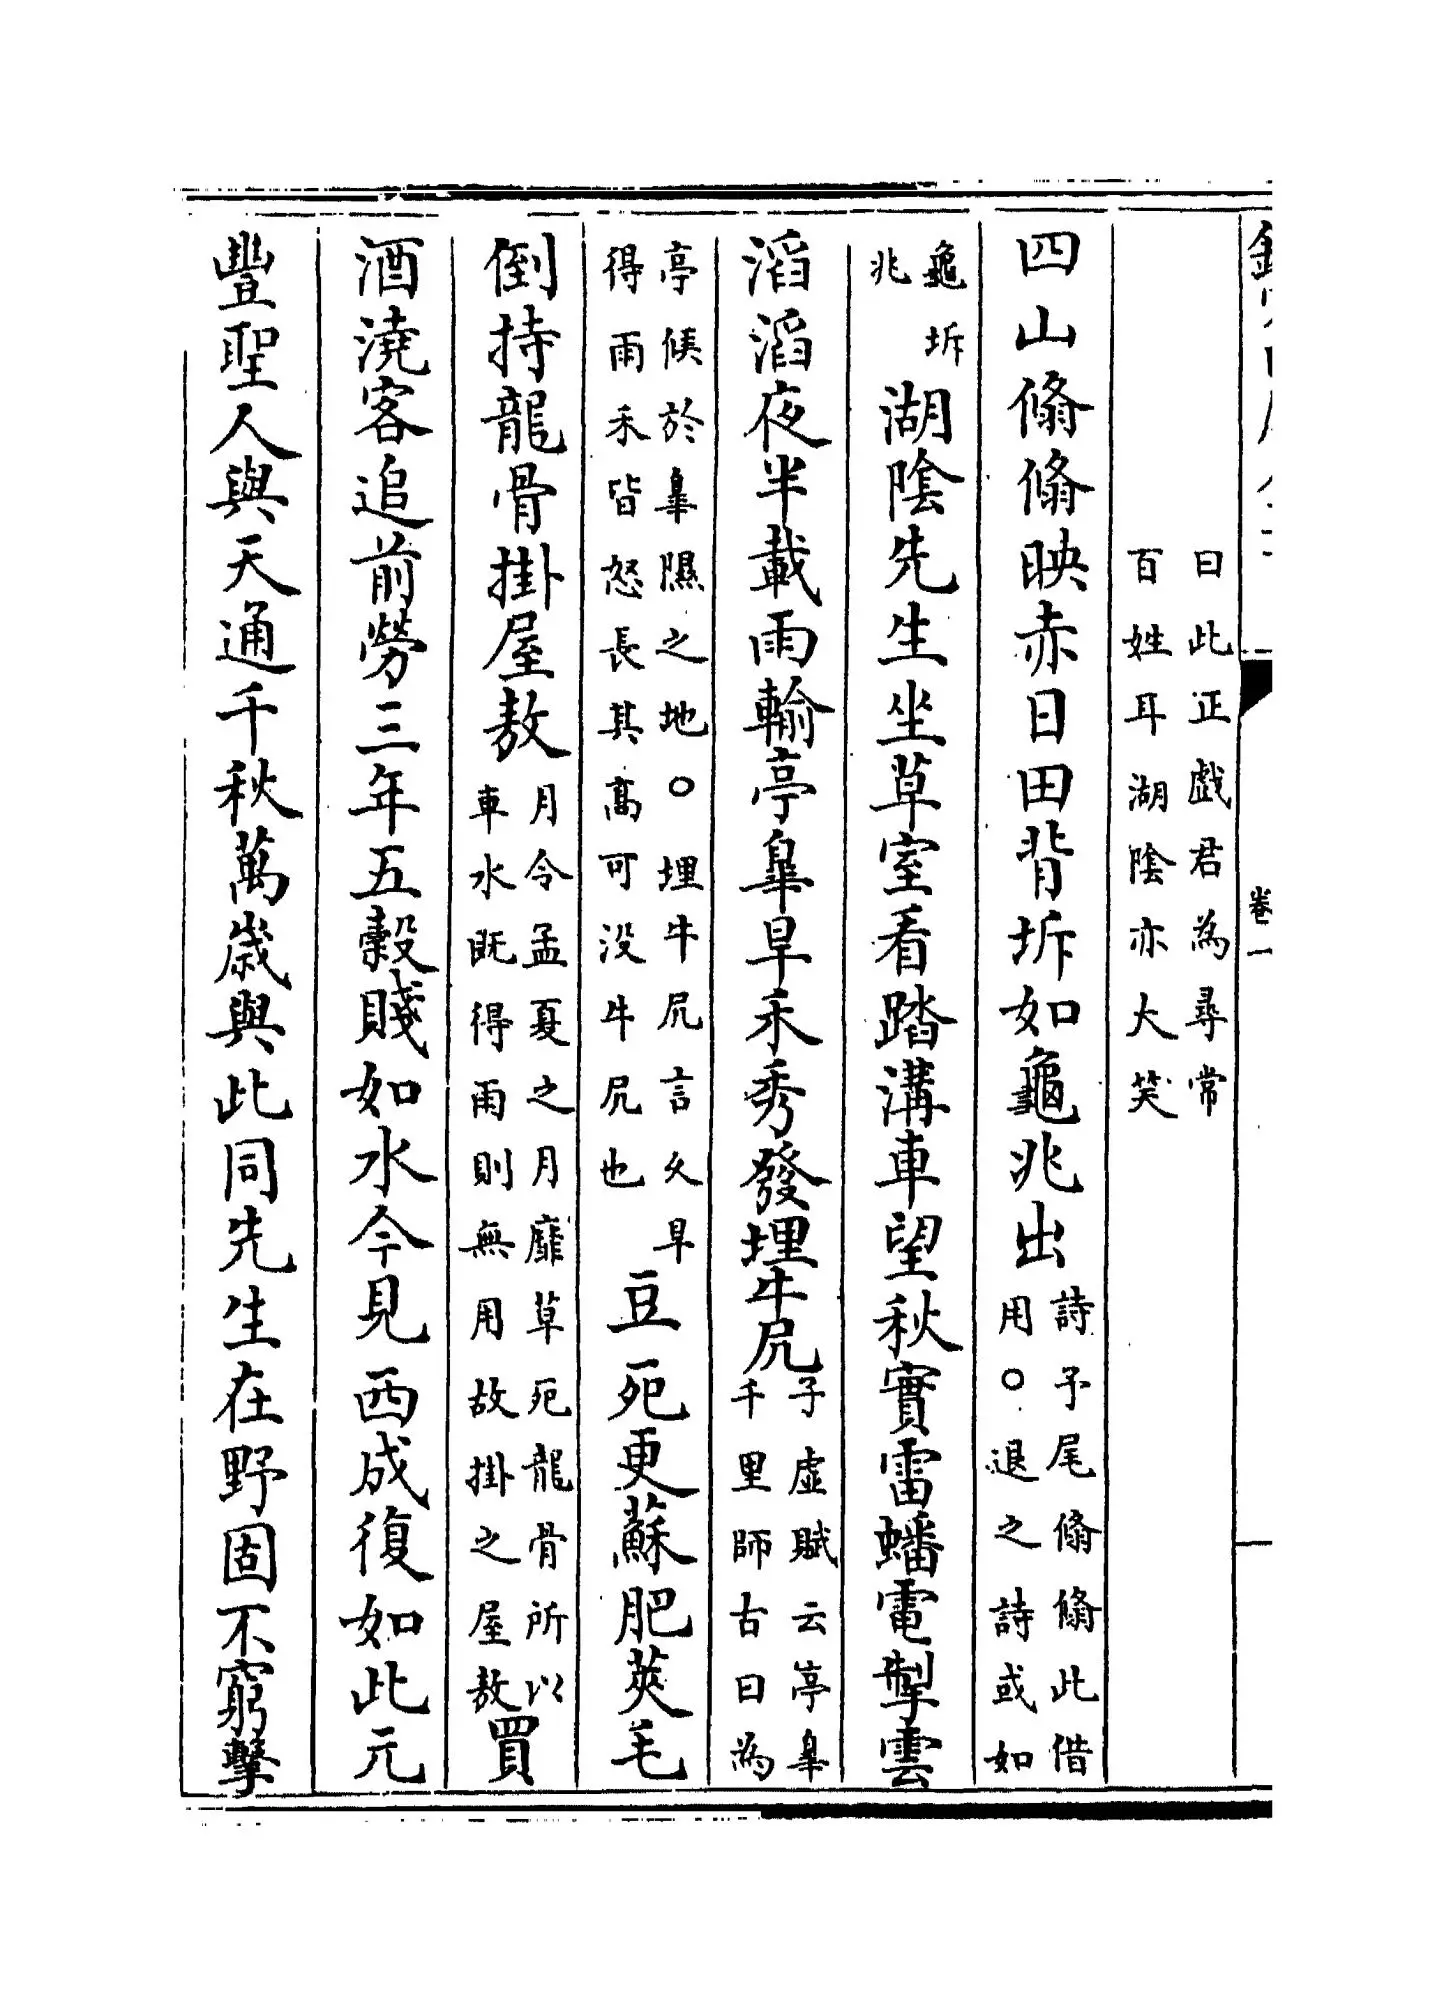 卷一
曰此正戯君為尋常
百姓耳湖陰亦大笑
四山翛翛映赤日田背坼如龜兆出
詩予尾翛翛此借
用○退之詩或如
龜坼
兆
湖陰先生坐草室看踏溝車望秋實雷蟠電掣雲
滔滔夜半載雨輸亭臯旱禾秀發埋牛尻
子虛賦云亭臯
千里師古曰為
亭候於臯隰之地○埋牛尻言久旱
得雨禾皆怒長其高可没牛尻也
豆死更蘇肥莢毛
倒持龍骨掛屋敖
月令孟夏之月靡草死龍骨所以
車水既得雨則無用故掛之屋敖
買
酒澆客追前勞三年五穀賤如水今見西成復如此元
豐聖人與天通千秋萬歲與此同先生在野固不窮擊